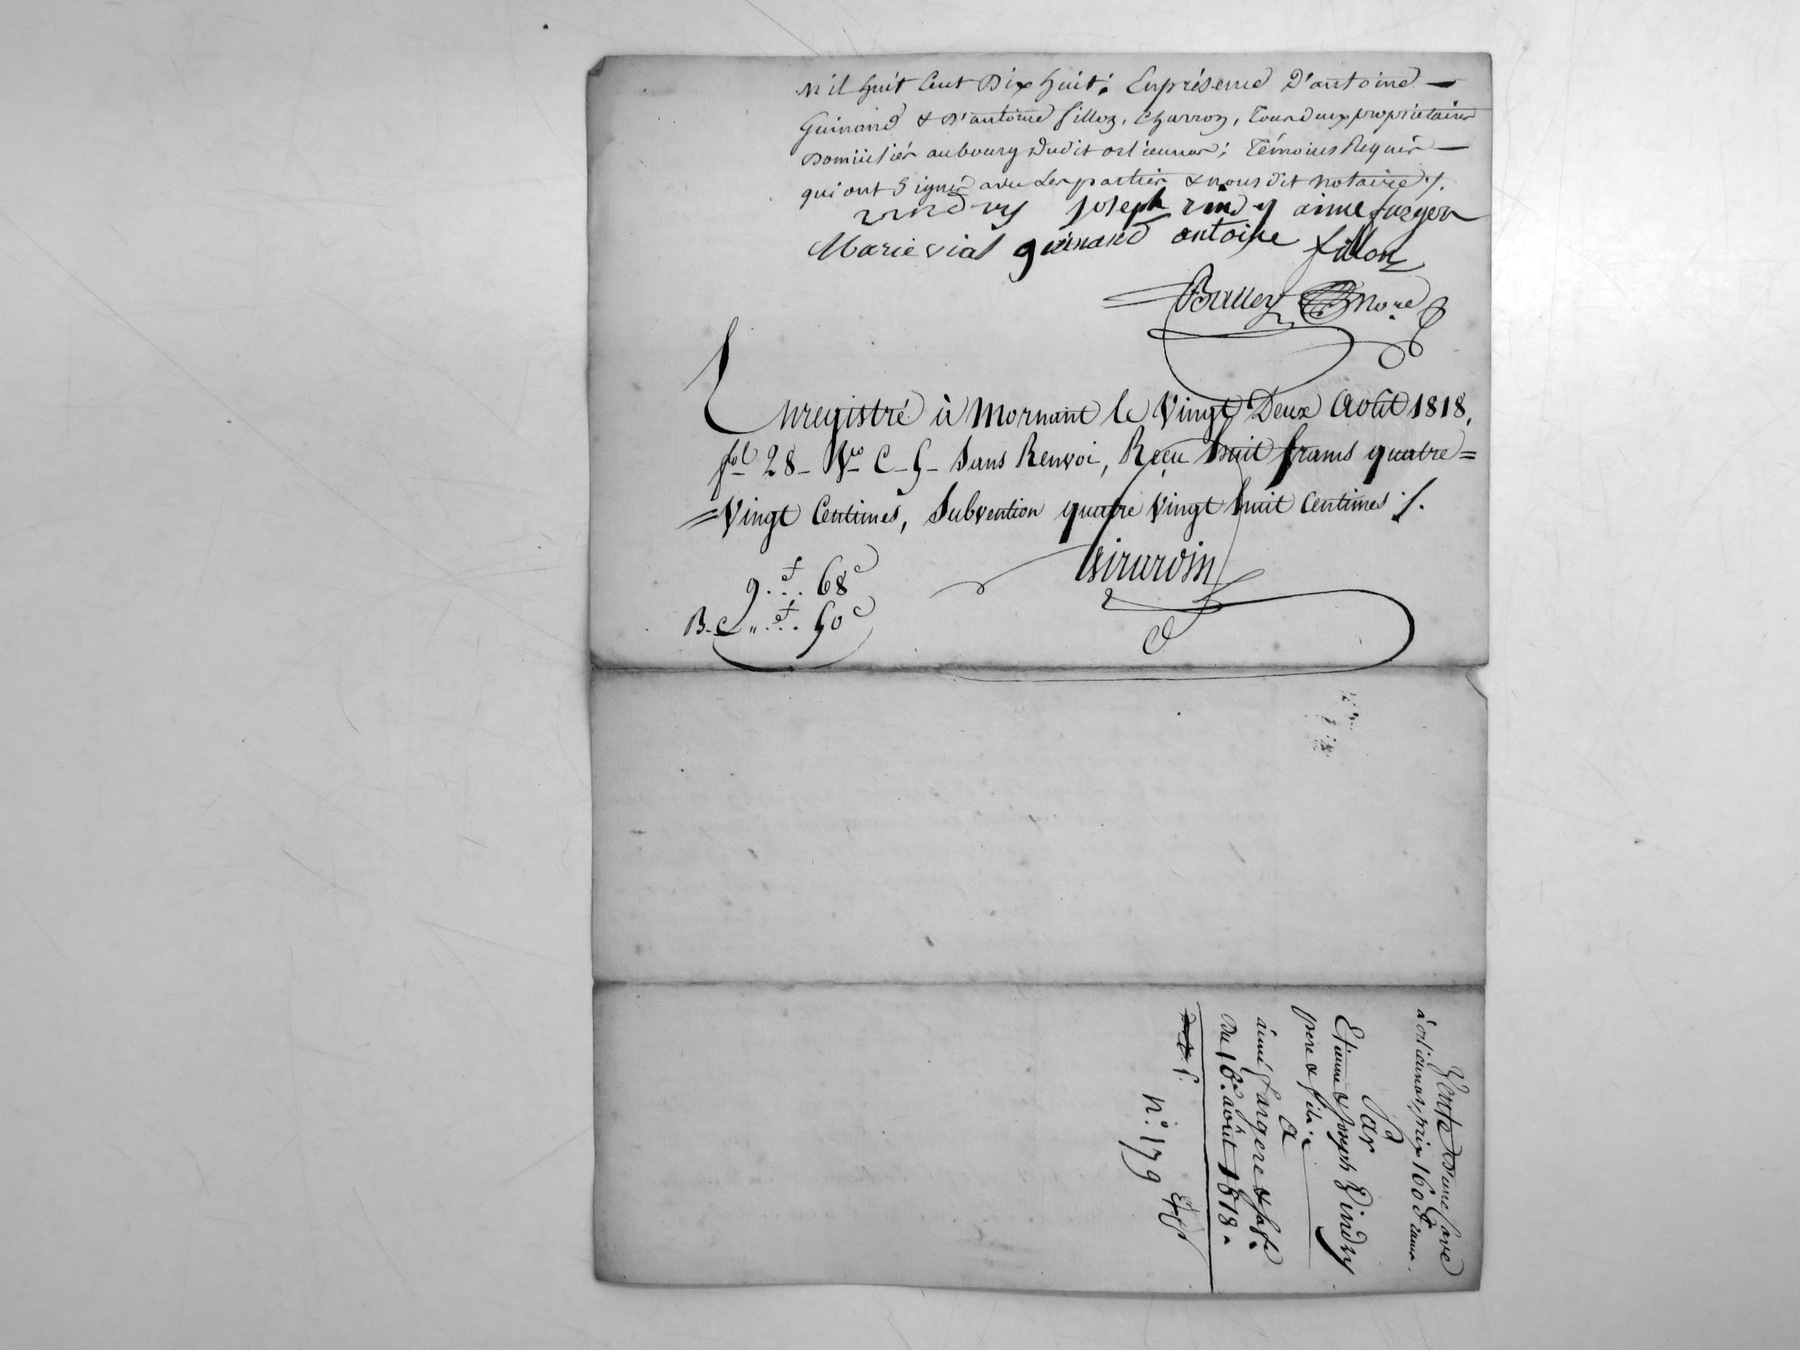 Mil huit Cent Dix huit; En présence D'antoine —
Guinand & D'antoine fillon, Charron, tous deux propriétaires
Domiciliés au bourg Dudit orliennas; Témoins Requis —
qui ont Signé avec Les parties & nous dit notaire ./.
vindry joseph vindry aime fargere
Marie vial guinand antoine fillon
Balley Nore
Enregistré à Mornant le Vingt Deux Août 1818,
fol 28 - Vo C - 5 - Sans Renvoi, Reçu huit francs quatre =
= Vingt Centimes, Subvention quatre Vingt huit Centimes ./.
Girardin
9. f. 68 c
B. C „ f. 50 c
Vente D'une Cave
à orliennas, prix 160 francs.
Par
Etienne & Joseph Vindry
pere & fils
a
aimé fargere & sa fe
Du 16 août 1818.
n° 179
Expt